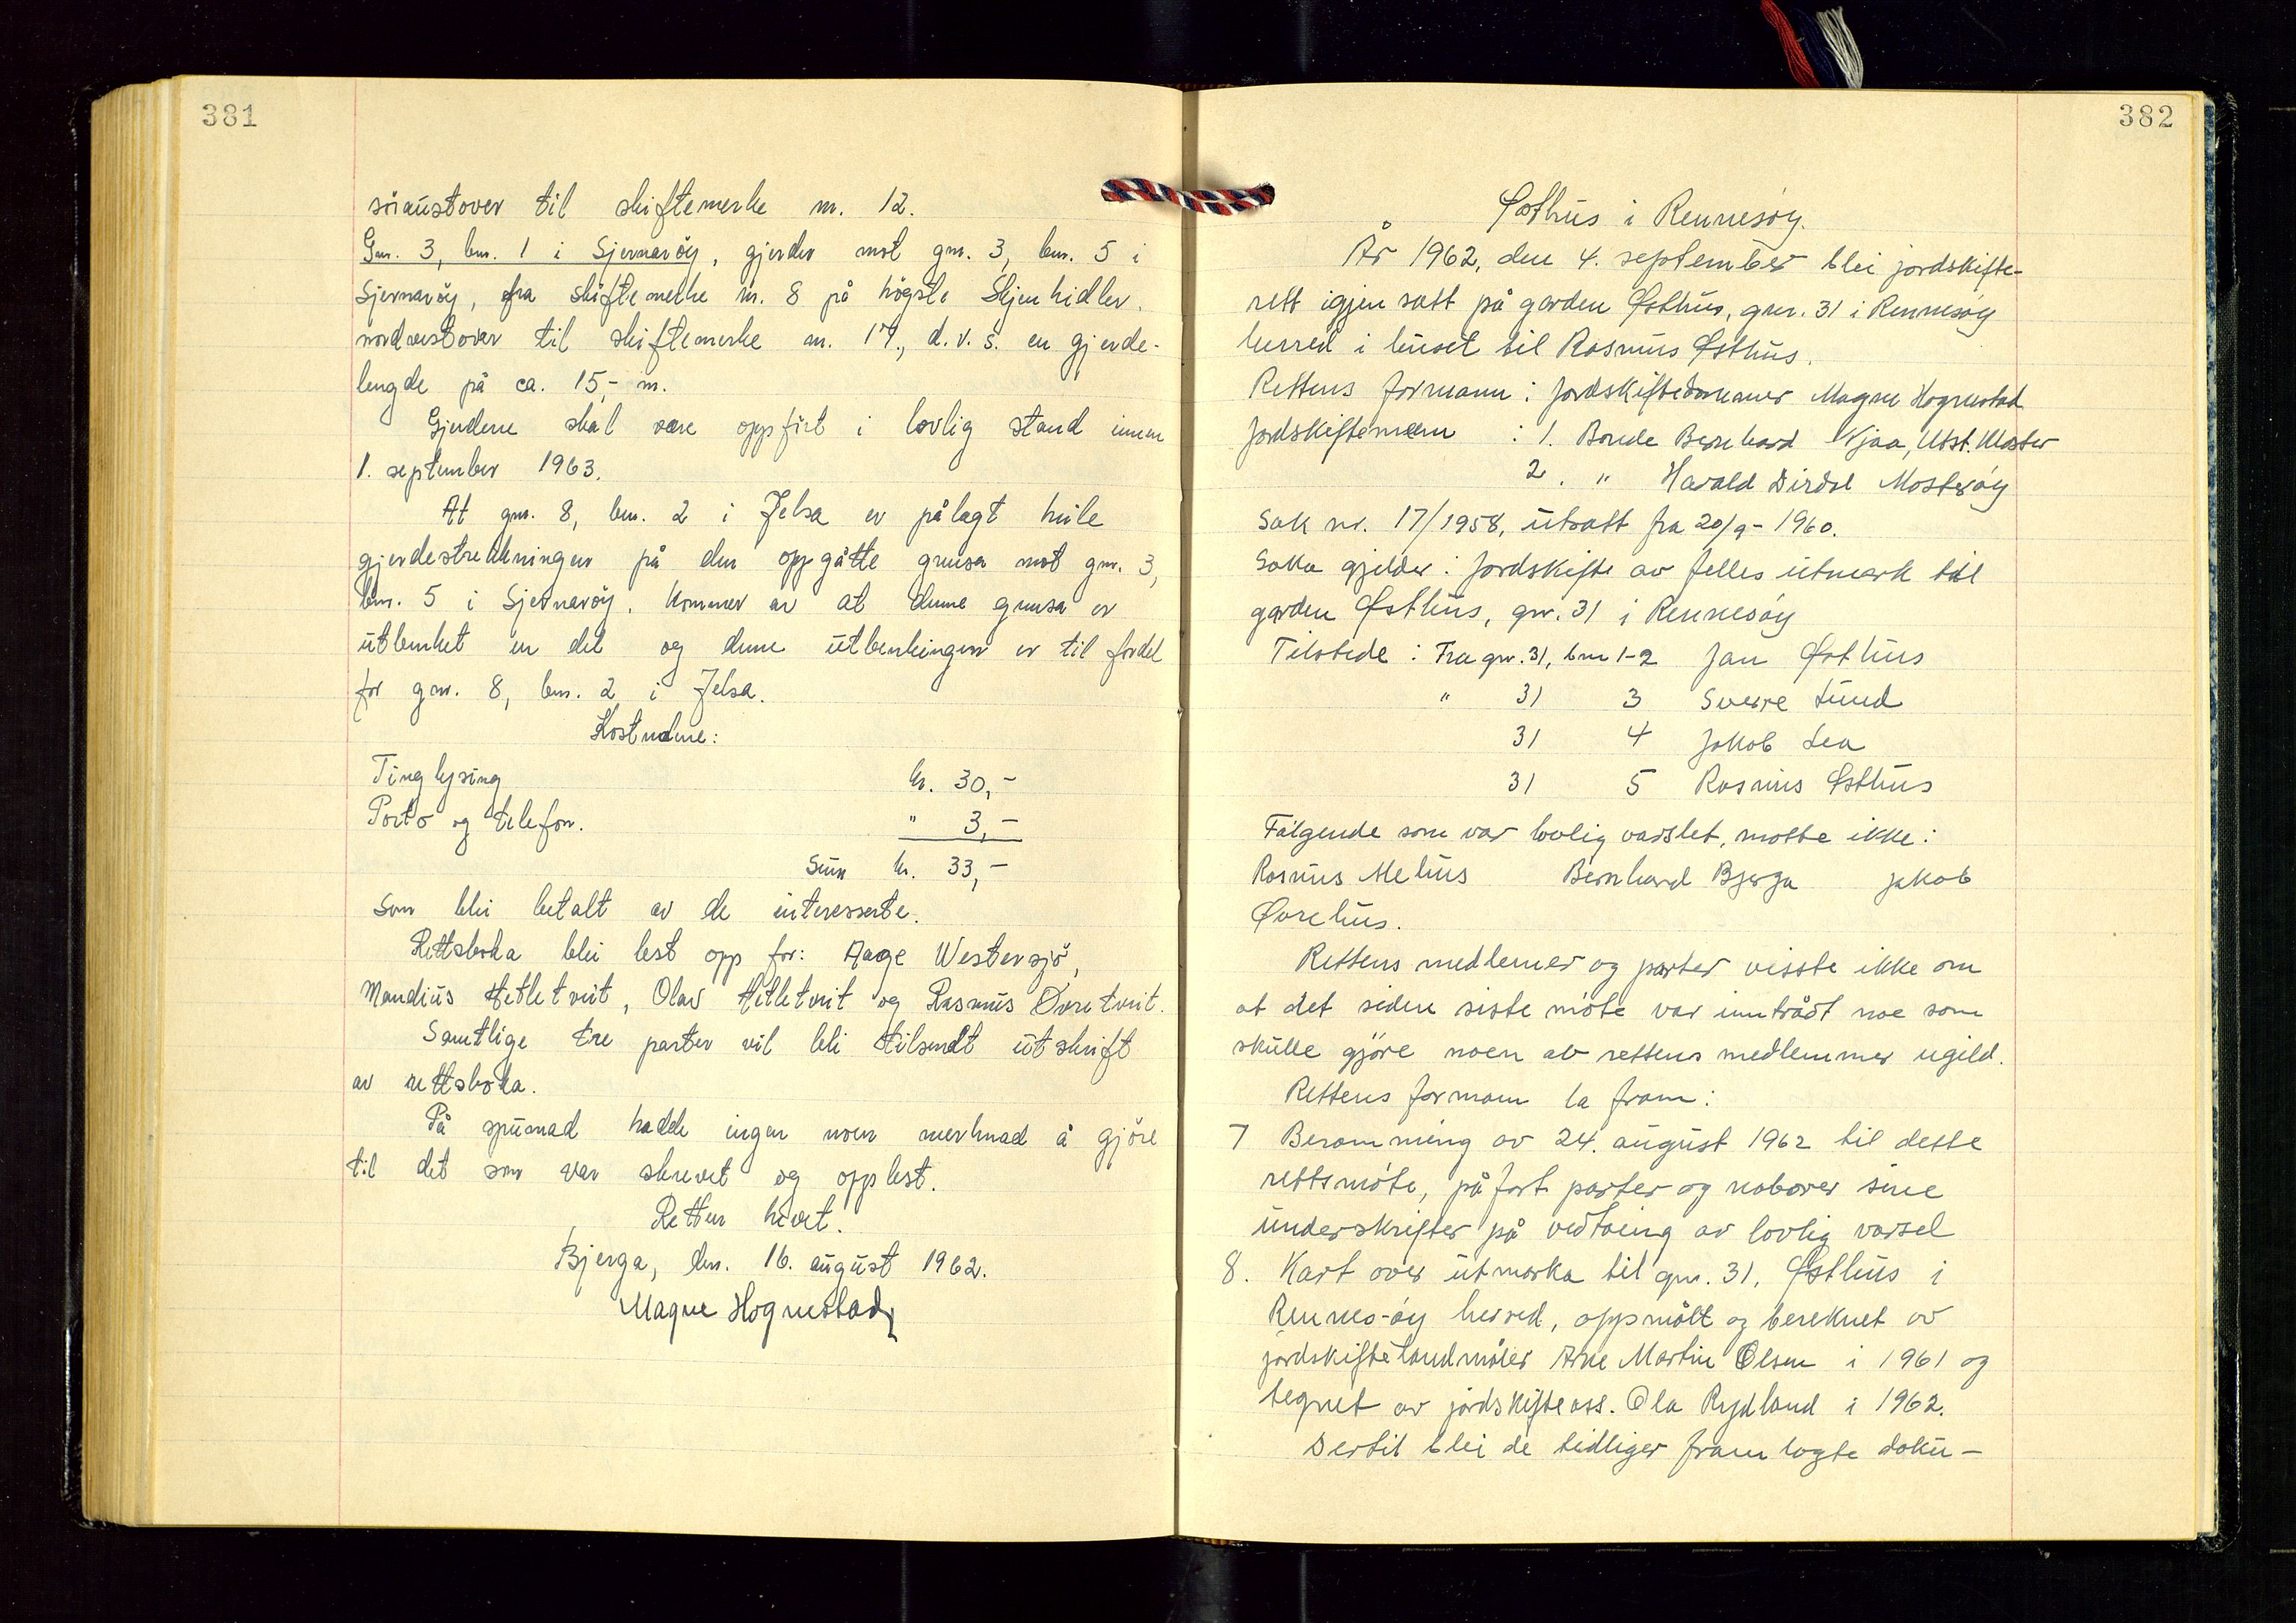 381
söraustover til skiftemerke nr. 12.
Gnr. 3, bnr. 1 i Sjernaröy, gjerder mot gnr. 3, bnr. 5 i
Sjernaröy, fra skiftemerke nr. 8 på högste Skjenhidler.
nordvestover til skiftemerke nr. 17., d.v.s. en gjerde-
lengde på ca. 15,- m.
Gjerdene skal være oppfört i lovlig stand innen
1. september 1963.
At gnr. 8, bnr. 2 i Jelsa er pålagt hele
gjerdestrekningen på den oppgåtte grensa mot gnr. 3,
bnr. 5 i Sjernaröy. kommer av at denne grensa er
utbenket en del og denne utbenkingen er til fordel
for gnr. 8, bnr. 2 i Jelsa.
Kostnadene:
Tinglysing kr. 30,-
Porto og telefon. " 3,-
Sum kr. 33,-
Som blei betalt av de interesserte.
Rettsboka blei lest opp for: Aage Westersjö,
Mandius Hetletveit, Olav Hetletveit og Rasmus Øvretveit.
Samtlige tre parter vil bli tilsendt utskrift
av rettsboka.
På spurnad hadde ingen noen merknad å gjöre
til det som var skrevet og opplest.
Retten hevet.
Bjerga, den. 16. august 1962.
Magne Hognestad
382
Østhus i Rennesøy.
År 1962, den 4. september blei jordskifte-
rett igjen satt på garden Østhus, gnr. 31 i Rennesøy
herred i huset til Rasmus Østhus.
Rettens formann : Jordskiftedommer Magne Hognestad
Jordskiftemenn : 1. Bonde Bernhard Kjaa, Utst. Kloster
2. " Harald Dirdal Mosterøy
Sak nr. 17/1958, utsatt fra 20/9-1960.
Saka gjelder : Jordskifte av felles utmark til
garden Østhus, gnr. 31 i Rennesøy
Tilstede : Fra gnr. 31, bnr 1-2 Jan Østhus
" 31 3 Sverre Lund
31 4 Jakob Lea
31 5 Rasmus Østhus
Følgende som var lovlig varslet, møtte ikke :
Rasmus Mehus Bernhard Bjerga Jakob
Øvrehus.
Rettens medlemer og parter visste ikke om
at det siden siste möte var inntrådt noe som
skulle gjöre noen av rettens medlemmer ugild.
Rettens formann la fram :
7 Beramming av 24. august 1962 til dette
rettsmöte, påfört parter og naboer sine
underskrifter på vedtaing av lovlig varsel
8. Kart over utmarka til gnr. 31, Østhus i
Rennes-øy herred, oppmålt og bereknet av
jordskiftelandmåler Arne Martin Olsen i 1961 og
tegnet av jordskifteass. Ola Rydland i 1962.
Dertil blei de tidliger framlagte doku-